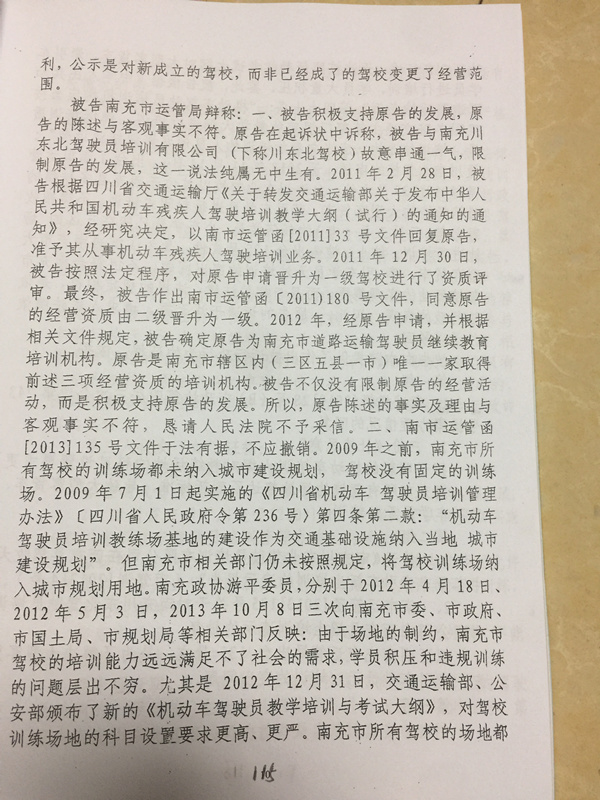 利，公示是对新成立的驾校，而非已经成了的驾校变更了经营范
围。
被告南充市运管局辩称：一、被告积极支持原告的发展，原
告的陈述与客观事实不符。原告在起诉状中诉称，被告与南充川
东北驾驶员培训有限公司（下称川东北驾校）故意串通一气，限
制原告的发展，这一说法纯属无中生有。2011年2月28日，被
告根据四川省交通运输厅《关于转发交通运输部关于发布中华人
民共和国机动车残疾人驾驶培训教学大纲（试行）的通知的通
知》，经研究决定，以南市运管函[2011]33 号文件回复原告，
准予其从事机动车残疾人驾驶培训业务。2011年12月30日，
被告按照法定程序，对原告申请晋升为一级驾校进行了资质评
审。最终，被告作出南市运管函〔2011)180 号文件，同意原告
的经营资质由二级晋升为一级。2012 年，经原告申请，并根据
相关文件规定，被告确定原告为南充市道路运输驾驶员继续教育
培训机构。原告是南充市辖区内（三区五县一市）唯一一家取得
前述三项经营资质的培训机构。被告不仅没有限制原告的经营活
动，而是积极支持原告的发展。所以，原告陈述的事实及理由与
客观事实不符，恳请人民法院不予采信。二、南市运管函
[2013]135 号文件于法有据，不应撤销。2009年之前，南充市所
有驾校的训练场都未纳入城市建设规划， 驾校没有固定的训练
场。2009年7月1日起实施的《四川省机动车 驾驶员培训管理
办法》〔四川省人民政府令第236号〉第四条第二款：“机动车
驾驶员培训教练场基地的建设作为交通基础设施纳入当地 城市
建设规划”。但南充市相关部门仍未按照规定，将驾校训练场纳
入城市规划用地。南充政协游平委员，分别于2012年4月18日、
2012年5月3 日，2013年10月8日三次向南充市委、市政府、
市国土局、市规划局等相关部门反映：由于场地的制约，南充市
驾校的培训能力远远满足不了社会的需求，学员积压和违规训练
的问题层出不穷。尤其是 2012年12月31日，交通运输部、公
安部颁布了新的《机动车驾驶员教学培训与考试大纲》，对驾校
训练场地的科目设置要求更高、更严。南充市所有驾校的场地都